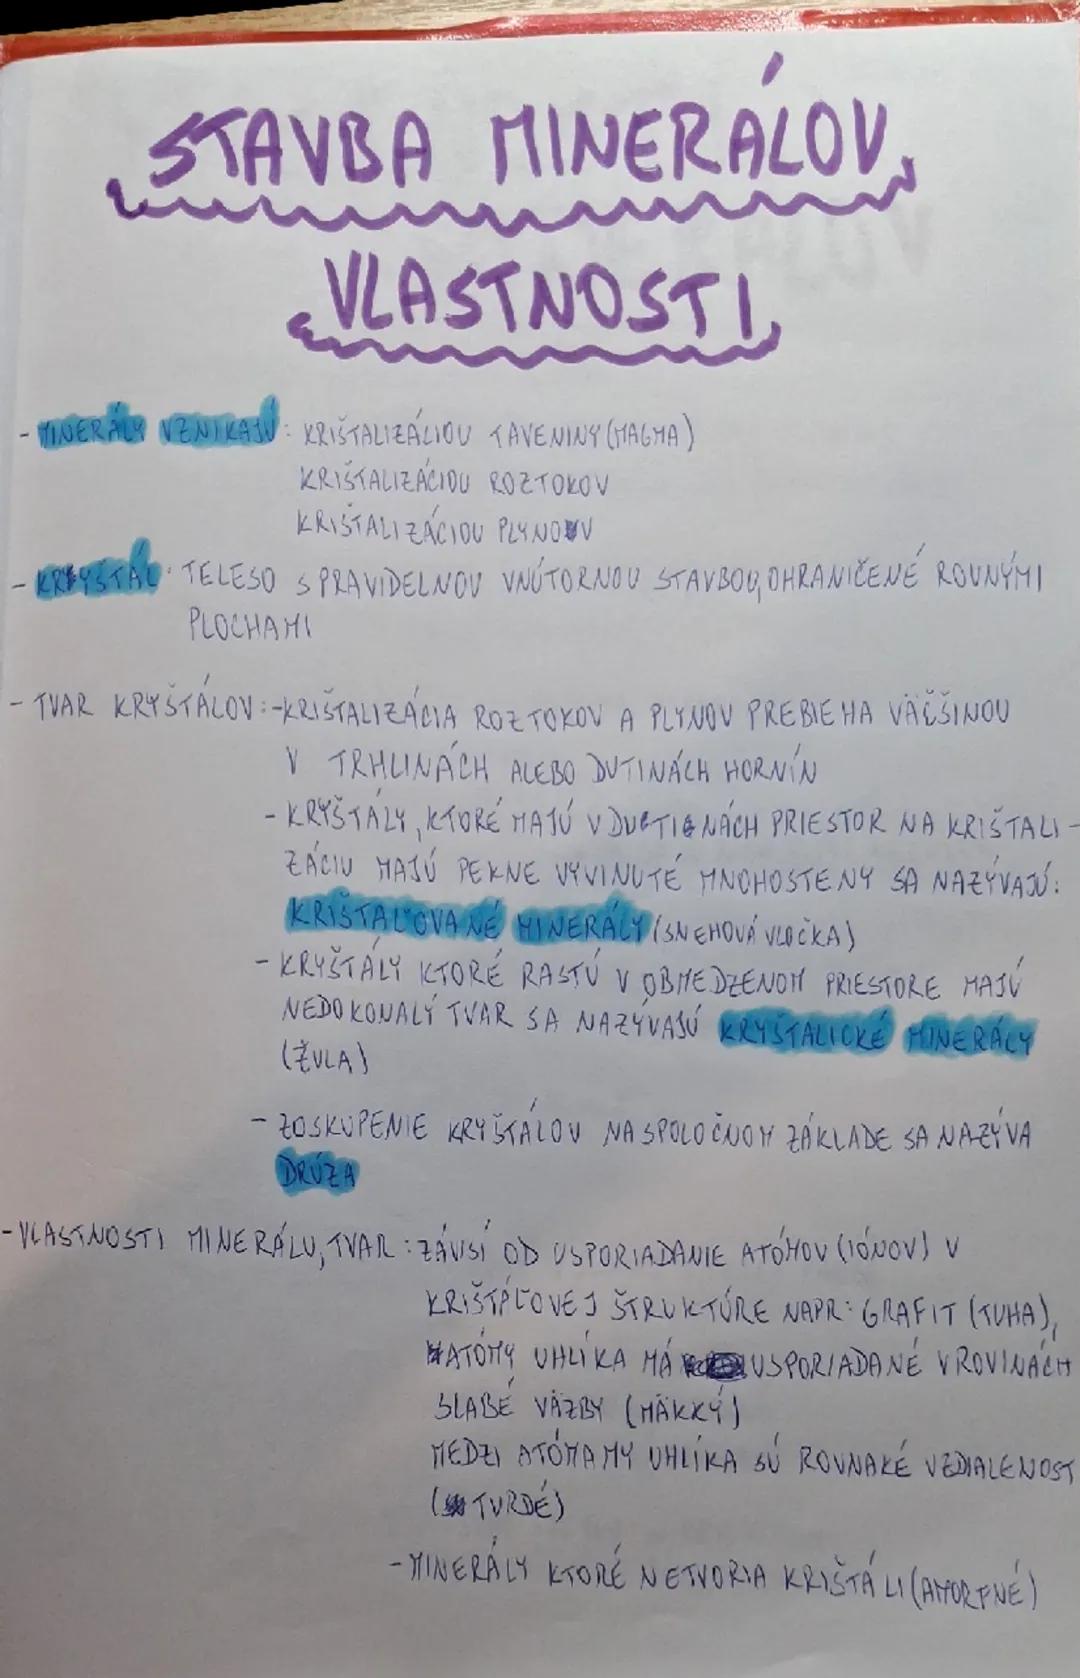 STAVBA MINERÁLOV,
VLASTNOSTI
- MINERÁLY VZNIKAJÚ: KRIŠTALIZÁCIOU TAVENINY (MAGMA)
KRIŠTALIZÁCIOU ROZTOKOV
KRIŠTALIZÁCIOU PLYNOV
- KRYŠTÁL: TELESO S PRAVIDELNOU VNÚTORNOU STAVBOU, OHRANIČENÉ ROVNÝMI
PLOCHAMI
- TVAR KRYŠTÁLOV: - KRIŠTALIZÁCIA ROZTOKOV A PLYNOV PREBIEHA VÄČŠINOU
V TRHLINÁCH ALEBO DUTINÁCH HORNÍN
- KRYŠTÁLY, KTORÉ MAJÚ V DUTINÁCH PRIESTOR NA KRIŠTALI-
ZÁCIU MAJÚ PEKNE VYVINUTÉ MNOHOSTENY SA NAZÝVAJÚ:
KRIŠTAĽOVANÉ MINERÁLY (SNEHOVÁ VLOČKA)
- KRYŠTÁLY KTORÉ RASTÚ V OBMEDZENOM PRIESTORE MAJÚ
NEDOKONALÝ TVAR SA NAZÝVAJÚ KRYŠTALICKÉ MINERÁLY
(ŽULA)
- ZOSKUPENIE KRYŠTÁLOV NA SPOLOČNOM ZÁKLADE SA NAZÝVA
DRÚZA
- VLASTNOSTI MINERÁLU, TVAR: ZÁVISÍ OD USPORIADANIE ATÓMOV (IÓNOV) V
KRIŠTÁĽOVEJ ŠTRUKTÚRE NAPR: GRAFIT (TUHA),
ATÓMY UHLÍKA MÁ USPORIADANÉ V ROVINÁCH
SLABÉ VÄZBY (MÄKKÝ)
MEDZI ATÓMAMY UHLÍKA SÚ ROVNAKÉ VZDIALENOST
(TVRDÉ)
- MINERÁLY KTORÉ NETVORIA KRIŠTÁLI (AMORFNÉ)